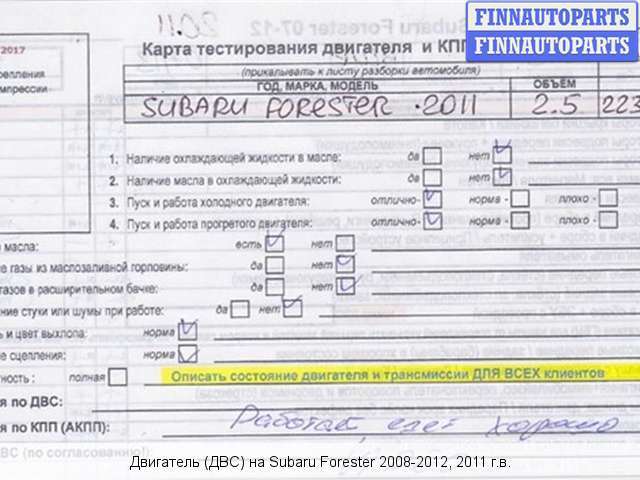 FINNAUTOPARTS
FINNAUTOPARTS
2011
Subaru Forester 07-12
2017
Карта тестирования двигателя и КПП
(прикалывать к листу разборки автомобиля)
репления
мпрессии
ГОД, МАРКА, МОДЕЛЬ ОБЪЁМ
SUBARU FORESTER · 2011 2.5 223
1. Наличие охлаждающей жидкости в масле: да нет
2. Наличие масла в охлаждающей жидкости: да нет
3. Пуск и работа холодного двигателя: отлично- норма - плохо-
4. Пуск и работа прогретого двигателя: отлично- норма- плохо-
масла: есть нет
е газы из маслозаливной горловины: да нет
газов в расширительном бачке: да нет
ние стуки или шумы при работе: да нет
ь и цвет выхлопа: норма
е сцепления: норма
тность : полная Описать состояние двигателя и трансмиссии ДЛЯ ВСЕХ клиентов
я по ДВС:
я по КПП (АКПП): Работал, едет хорошо
ВС (по согласованию!)
Двигатель (ДВС) на Subaru Forester 2008-2012, 2011 г.в.